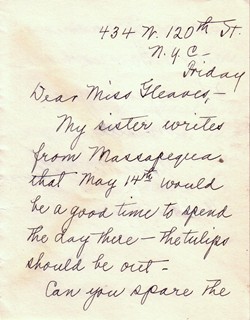 434 W. 120th St.
N.Y.C-
Friday
Dear Miss Gleaves,-
My sister writes
from Massapequa
that May 14th would
be a good time to spend
the day there - the tulips
should be out -
Can you spare the